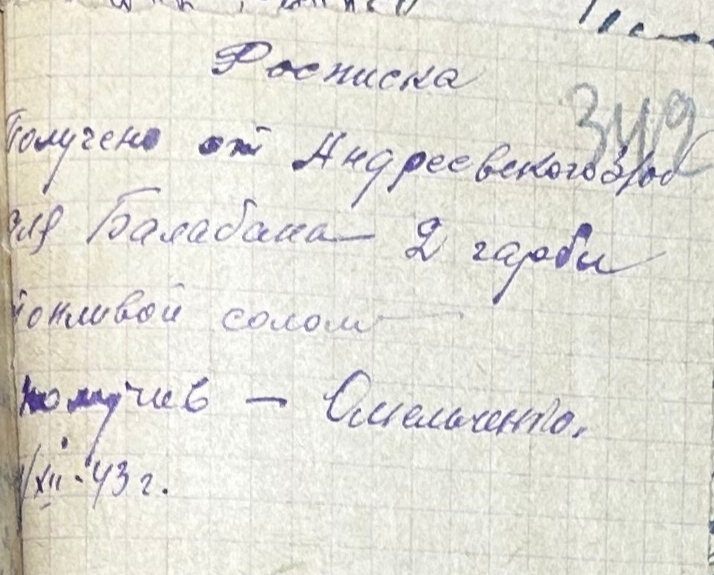 Росписка
349
Получено от Андреевского з/од
для Балабана 2 гарби
топливой соломы
получив — Омельченко.
/XII-43 г.